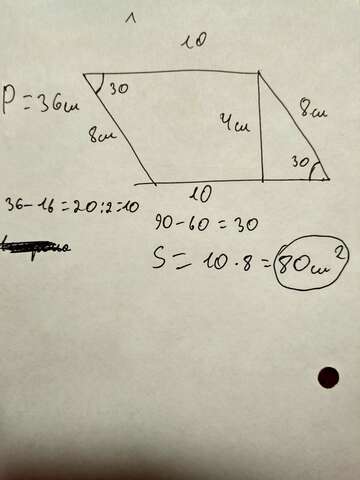 1
10
30
P = 36см
8см
4см
8см
30
10
36-16=20:2=10
90-60=30
S = 10·8=80см²